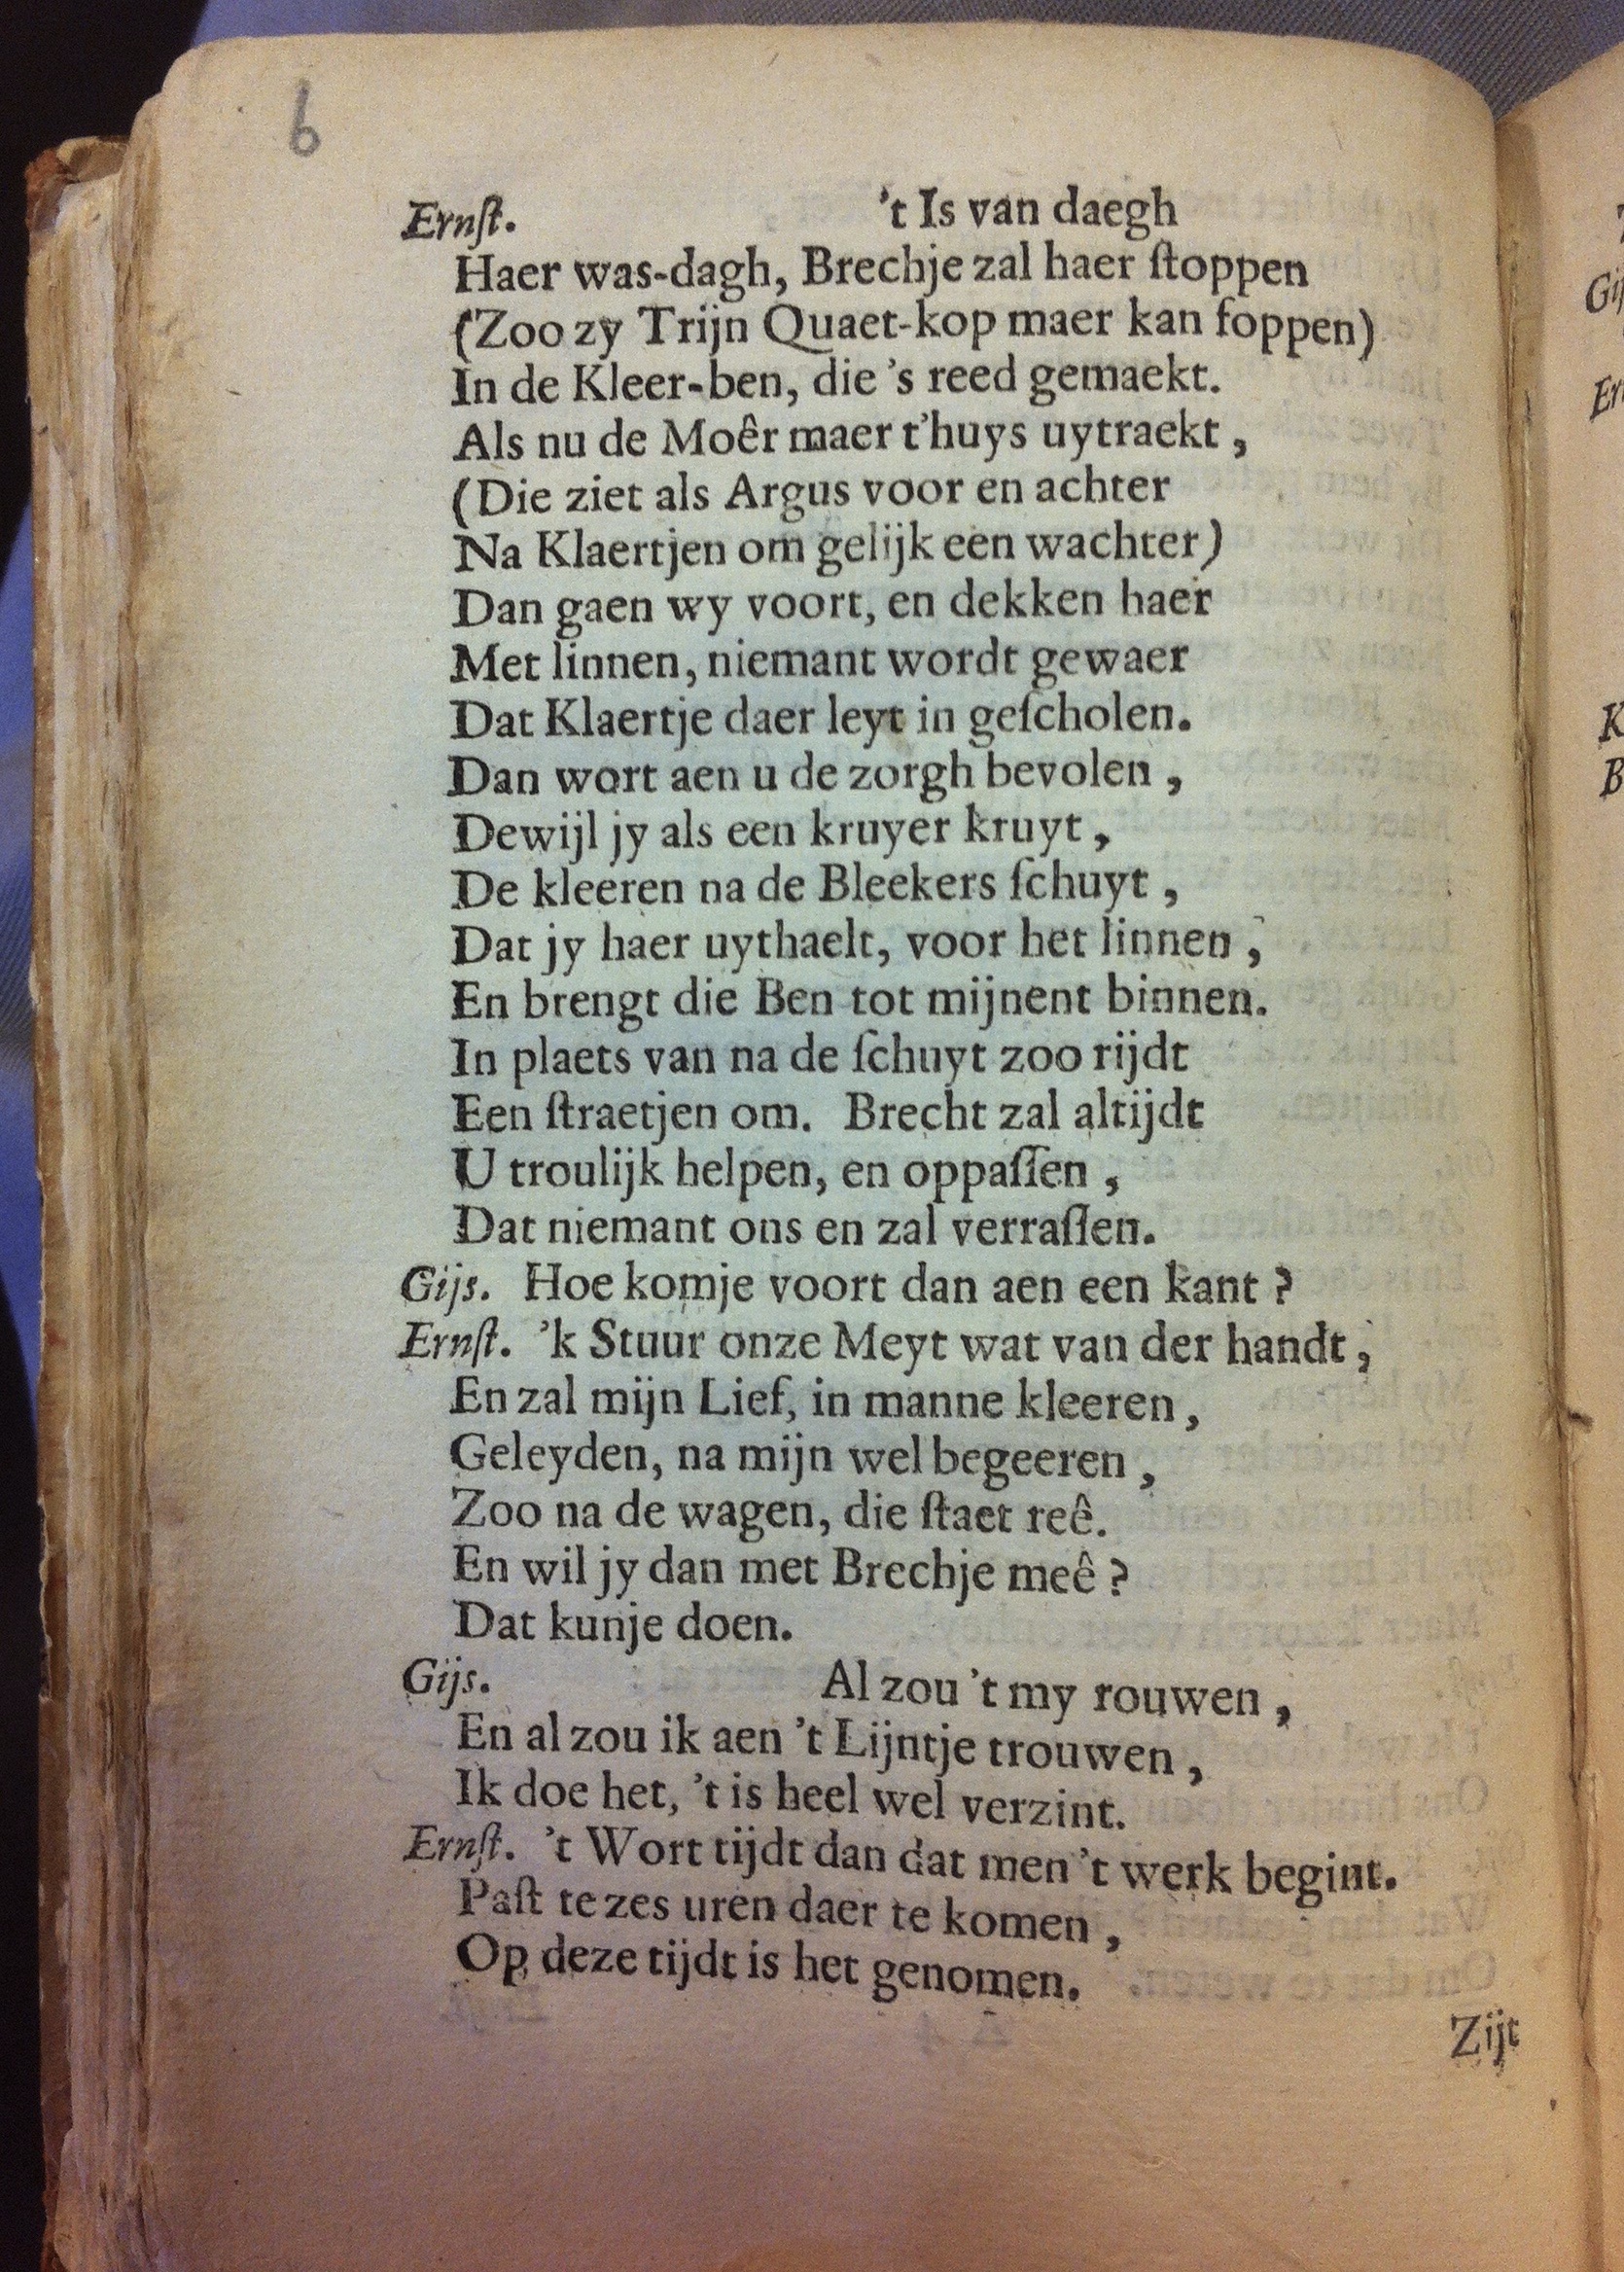 6
Ernſt. 't Is van daegh
Haer was-dagh, Brechje zal haer ſtoppen
(Zoo zy Trijn Quaet-kop maer kan foppen)
In de Kleer-ben, die 's reed gemaekt.
Als nu de Moêr maer t'huys uytraekt,
(Die ziet als Argus voor en achter
Na Klaertjen om gelijk een wachter)
Dan gaen wy voort, en dekken haer
Met linnen, niemant wordt gewaer
Dat Klaertje daer leyt in geſcholen.
Dan wort aen u de zorgh bevolen,
Dewijl jy als een kruyer kruyt,
De kleeren na de Bleekers ſchuyt,
Dat jy haer uythaelt, voor het linnen,
En brengt die Ben tot mijnent binnen.
In plaets van na de ſchuyt zoo rijdt
Een ſtraetjen om. Brecht zal altijdt
U troulijk helpen, en oppaſſen,
Dat niemant ons en zal verraſſen.
Gijs. Hoe komje voort dan aen een kant?
Ernſt. 'k Stuur onze Meyt wat van der handt,
En zal mijn Lief, in manne kleeren,
Geleyden, na mijn wel begeeren,
Zoo na de wagen, die ſtaet reê.
En wil jy dan met Brechje meê?
Dat kunje doen.
Gijs. Al zou 't my rouwen,
En al zou ik aen 't Lijntje trouwen,
Ik doe het, 't is heel wel verzint.
Ernſt. 't Wort tijdt dan dat men 't werk begint.
Paſt te zes uren daer te komen,
Op deze tijdt is het genomen.
Zijt